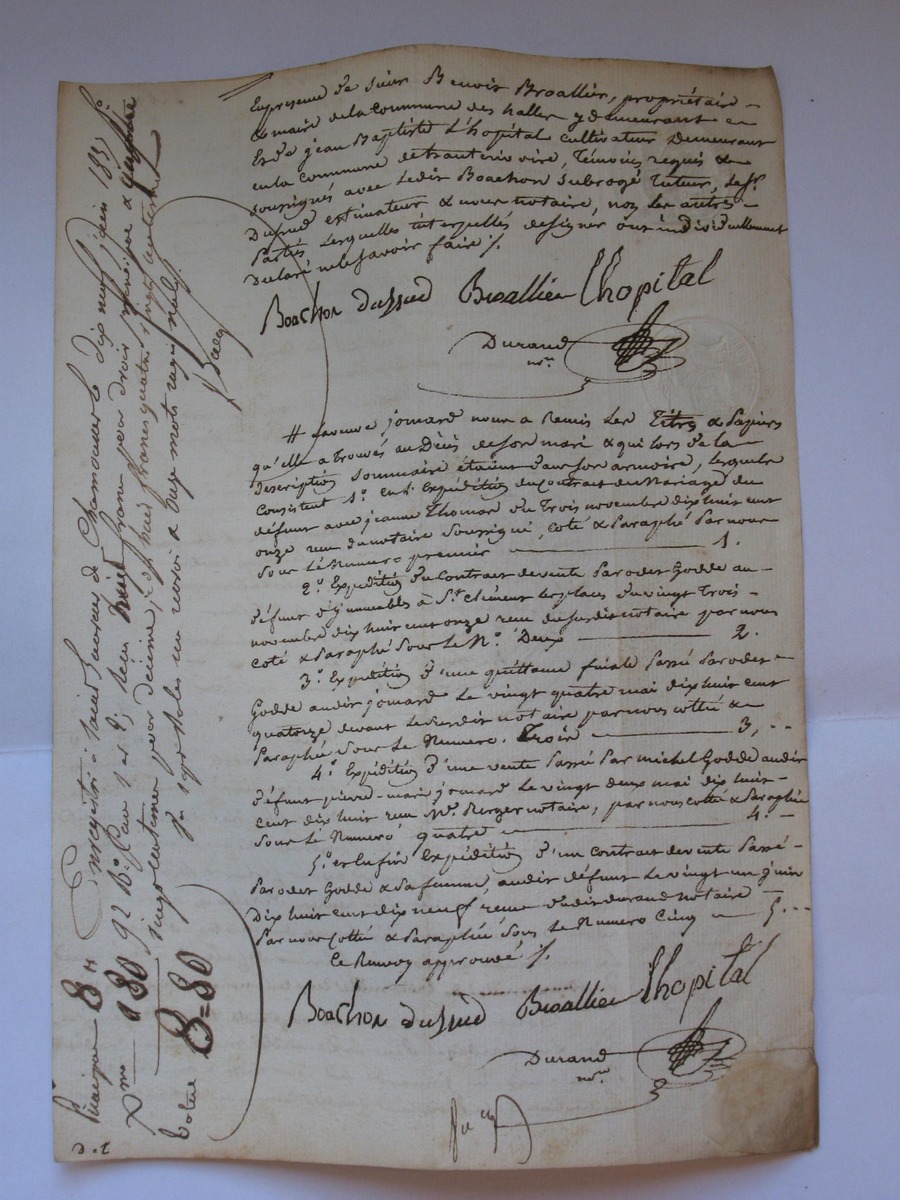 En presence de Sieur Benoit Broallier, propriétaire
& maire de la commune des halles y demeurant
Et de jean Baptiste L'hopital cultivateur Demeurant
en la commune de , Témoins requis &
soussignés avec Ledit Boachon Subrogé Tuteur, Le Sr
Dussud estimateur & nous notaire, non les autres
Parties Lesquelles interpellées de signer ont individuellement
declaré ne le savoir faire /.
Boachon dussud Broallier Lhopital
Durand
nre
# La veuve jomard nous a Remis Les Titres & Papiers
qu'elle a trouvés au Décès de son mari & qui lors de la
Description Sommaire étaient dans son armoire, Lesquels
Consistent 1.º en l'Expédition du Contrat de Mariage du
défunt avec jeanne Thomas du Trois novembre dix huit cent
onze reçu du notaire Soussigné, coté & Paraphé Par nous
Sous Le Numero premier 1.
2.º Expédition du Contrat de vente Par odet Godde au
défunt d'immeubles à St Clément les places du vingt Trois
novembre dix huit cent onze reçu du susdit notaire par nous
coté & Paraphé Sous Le No. Deux 2.
3.º Expédition d'une quittance finale Passé Par odet
Godde audit jomard Le vingt quatre mai dix huit cent
quatorze devant Le susdit notaire par nous cotté &
Paraphé Sous Le Numero. Trois 3, . .
4.º Expédition d'une vente Passé Par michel Godde audit
défunt pierre-marie jomard Le vingt deux mai dix huit
cent dix huit reçu Me. Berger notaire, par nous cotté & Paraphée
Sous Le Numero quatre 4.
5.º et Enfin Expédition d'un contrat de vente Passé
Par odet Godde & sa femme, audit défunt Le vingt un juin
Dix huit cent dix neuf reçu dudit durand notaire
Par nous Cotté & Paraphée Sous Le Numero Cinq 5. . .
Ce Renvoy approuvé /.
Boachon dussud Broallier Lhopital
Durand
nre
Enregistré à Saint Laurent de Chamousset le dix neuf juin
92 Ro. Case 1 et 2, reçu huit francs pour droit principal &
supplement pour décime,
un renvoi & onze mots rayés nuls
Principal 8"
Dme 80
Total 8=80
D.t